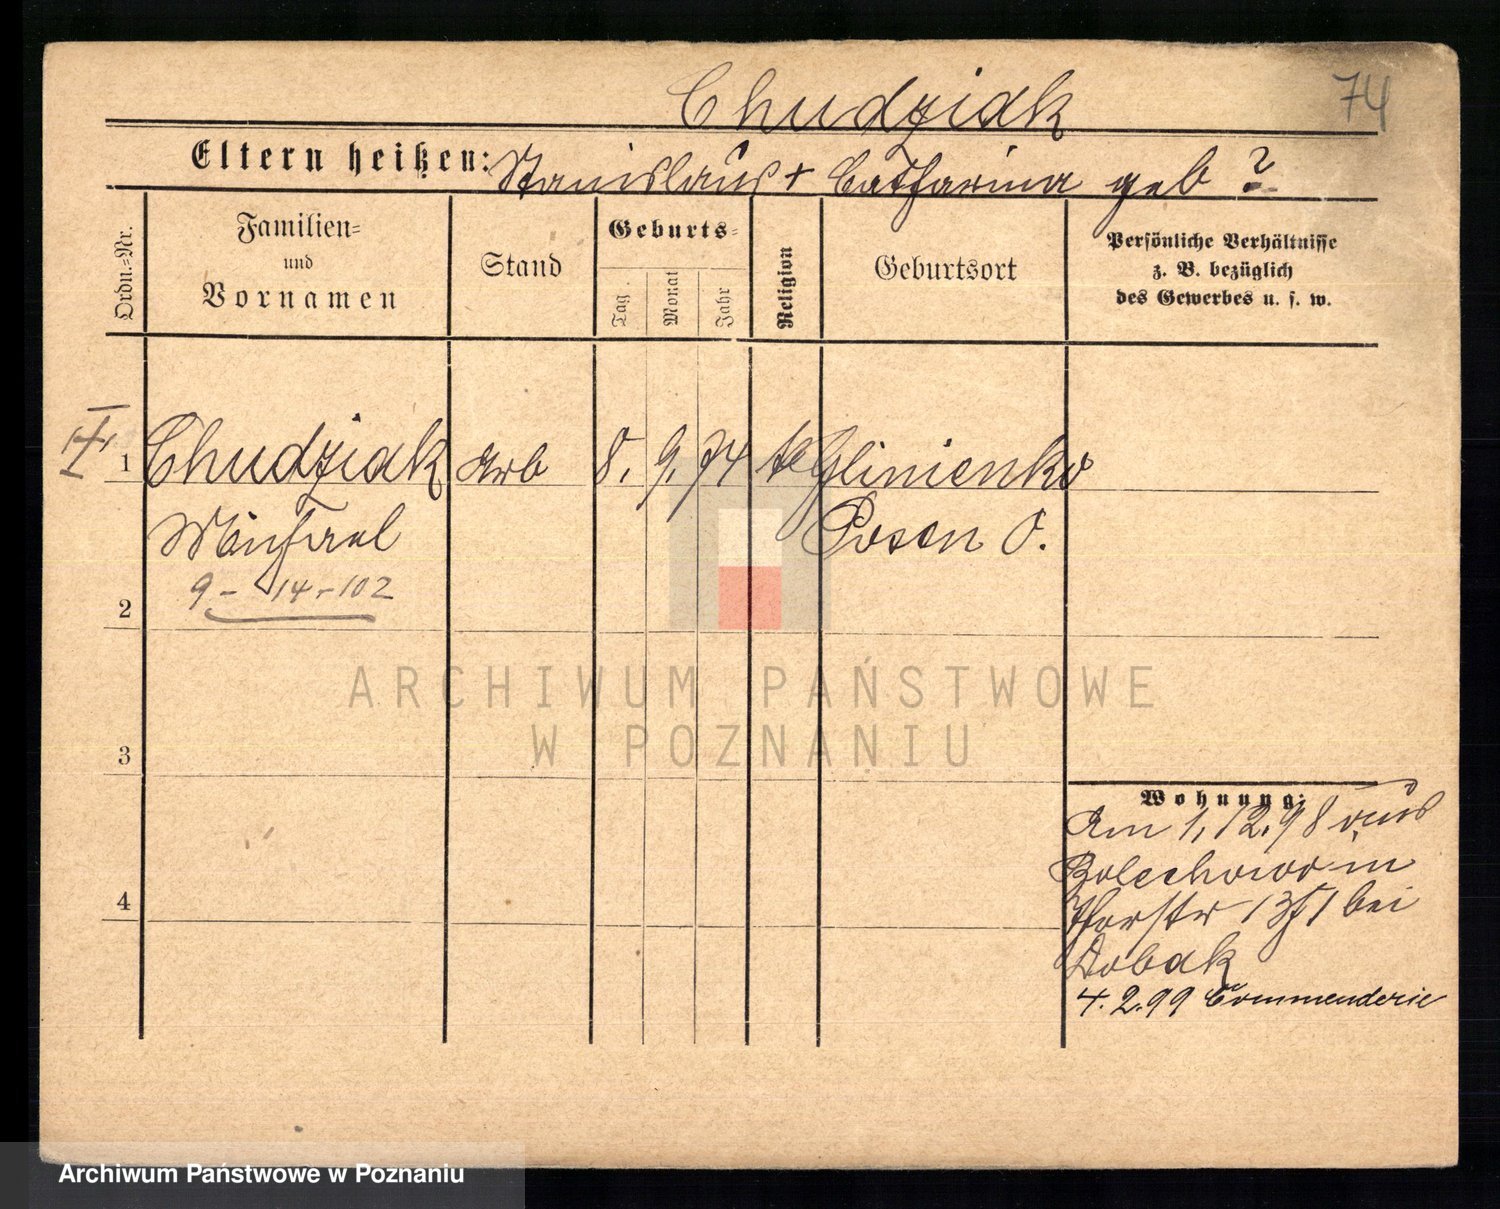 Chudziak
74
Eltern heißen: Stanislaus + Catharina geb ?
Ordn.-Nr.
Familien-
und
Vornamen
Stand
Geburts-
Tag.
Monat
Jahr
Religion
Geburtsort
Persönliche Verhältnisse
z. B. bezüglich
des Gewerbes u. s. w.
1 Chudziak Arb 8. 9. 74 Glinienko
Michael Posen O.
9 - 14 - 102
2
ARCHIWUM PAŃSTWOWE
W POZNANIU
3
Wohnung:
Am 1. 12. 98 aus
Bolechowo in
bei
4
Dobak
4. 2. 99 Commenderie
Archiwum Państwowe w Poznaniu